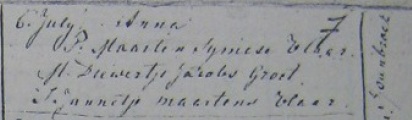 6. July Anna 7
P. Maarten Symese Vlaar.
M. Diewertje Jacobs Groot.
T. Jannetje maartens Vlaar.